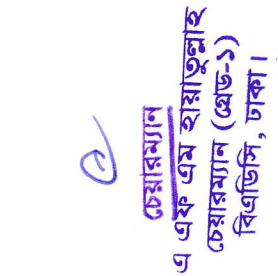 চেয়ারম্যান
এ এফ এম হায়াতুল্লাহ
চেয়ারম্যান (গ্রেড-১)
বিএডিসি, ঢাকা।